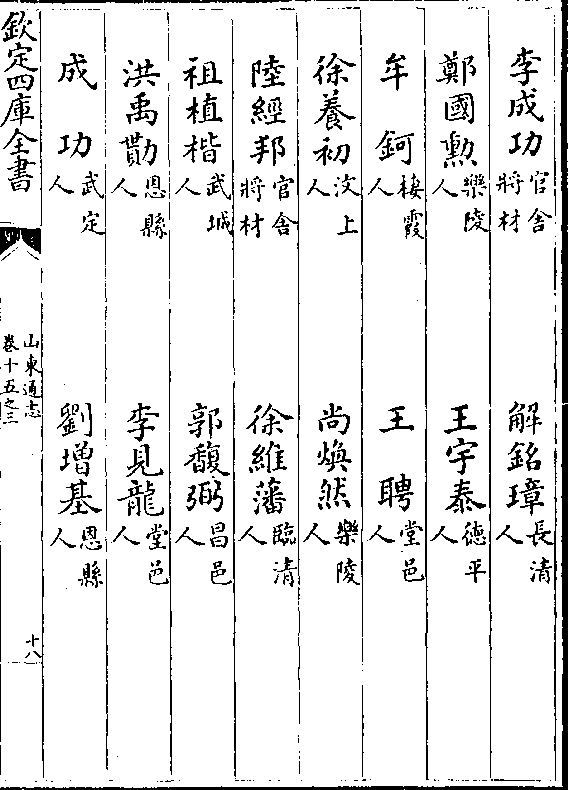 李成功官舍將材　解銘璋長清人
鄭國勲樂陵人　王宇泰徳平人
牟鈳棲霞人　王聘堂邑人
徐養初汶上人　尚煥然樂陵人
陸經邦官舍將材　徐維藩臨清人
祖植楷武城人　郭馥弼昌邑人
洪禹勛恩縣人　李見龍堂邑人
成功武定人　劉增基恩縣人
欽定四庫全書
山東通志
卷十五之三
十八